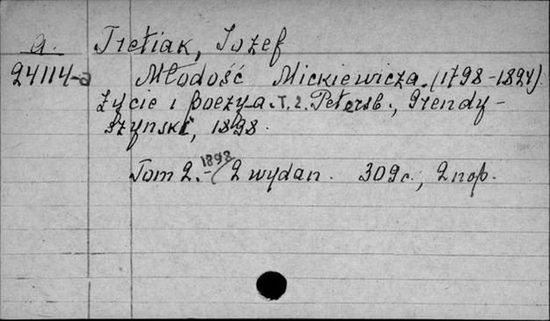 a. Tretiak, Jozef
24114-a Młodość Mickiewicza (1798-1824).
Życie i poezya. T. 2. Petersb., Grendy-
szynski, 1898.
1898
Tom 2. - 2 wydan. 309 c.,